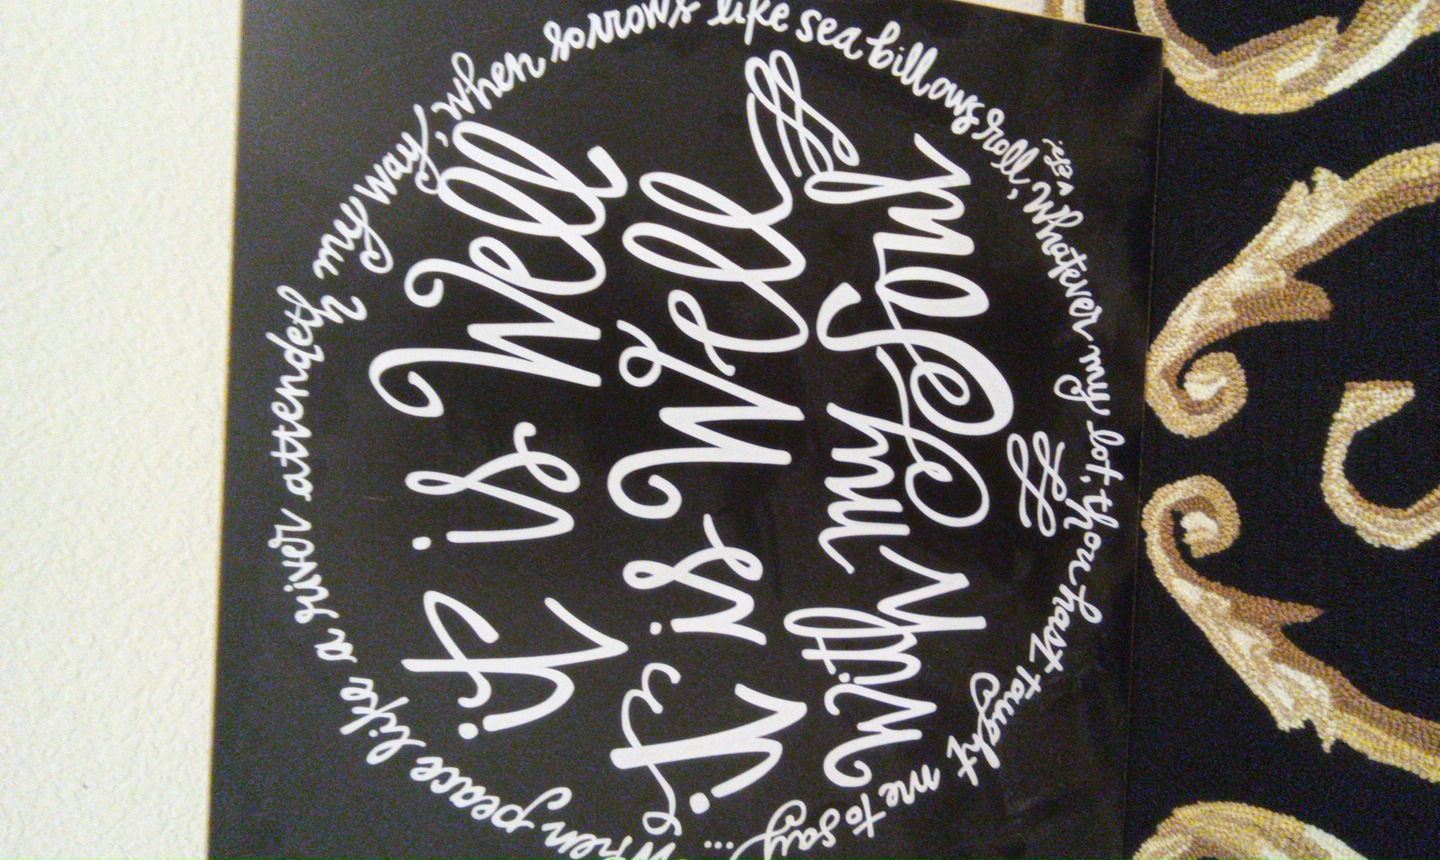 When peace like a river attendeth my way, when sorrows like sea billows roll, whatever my lot, thou hast taught me to say...
it is Well
it is Well
with my Soul